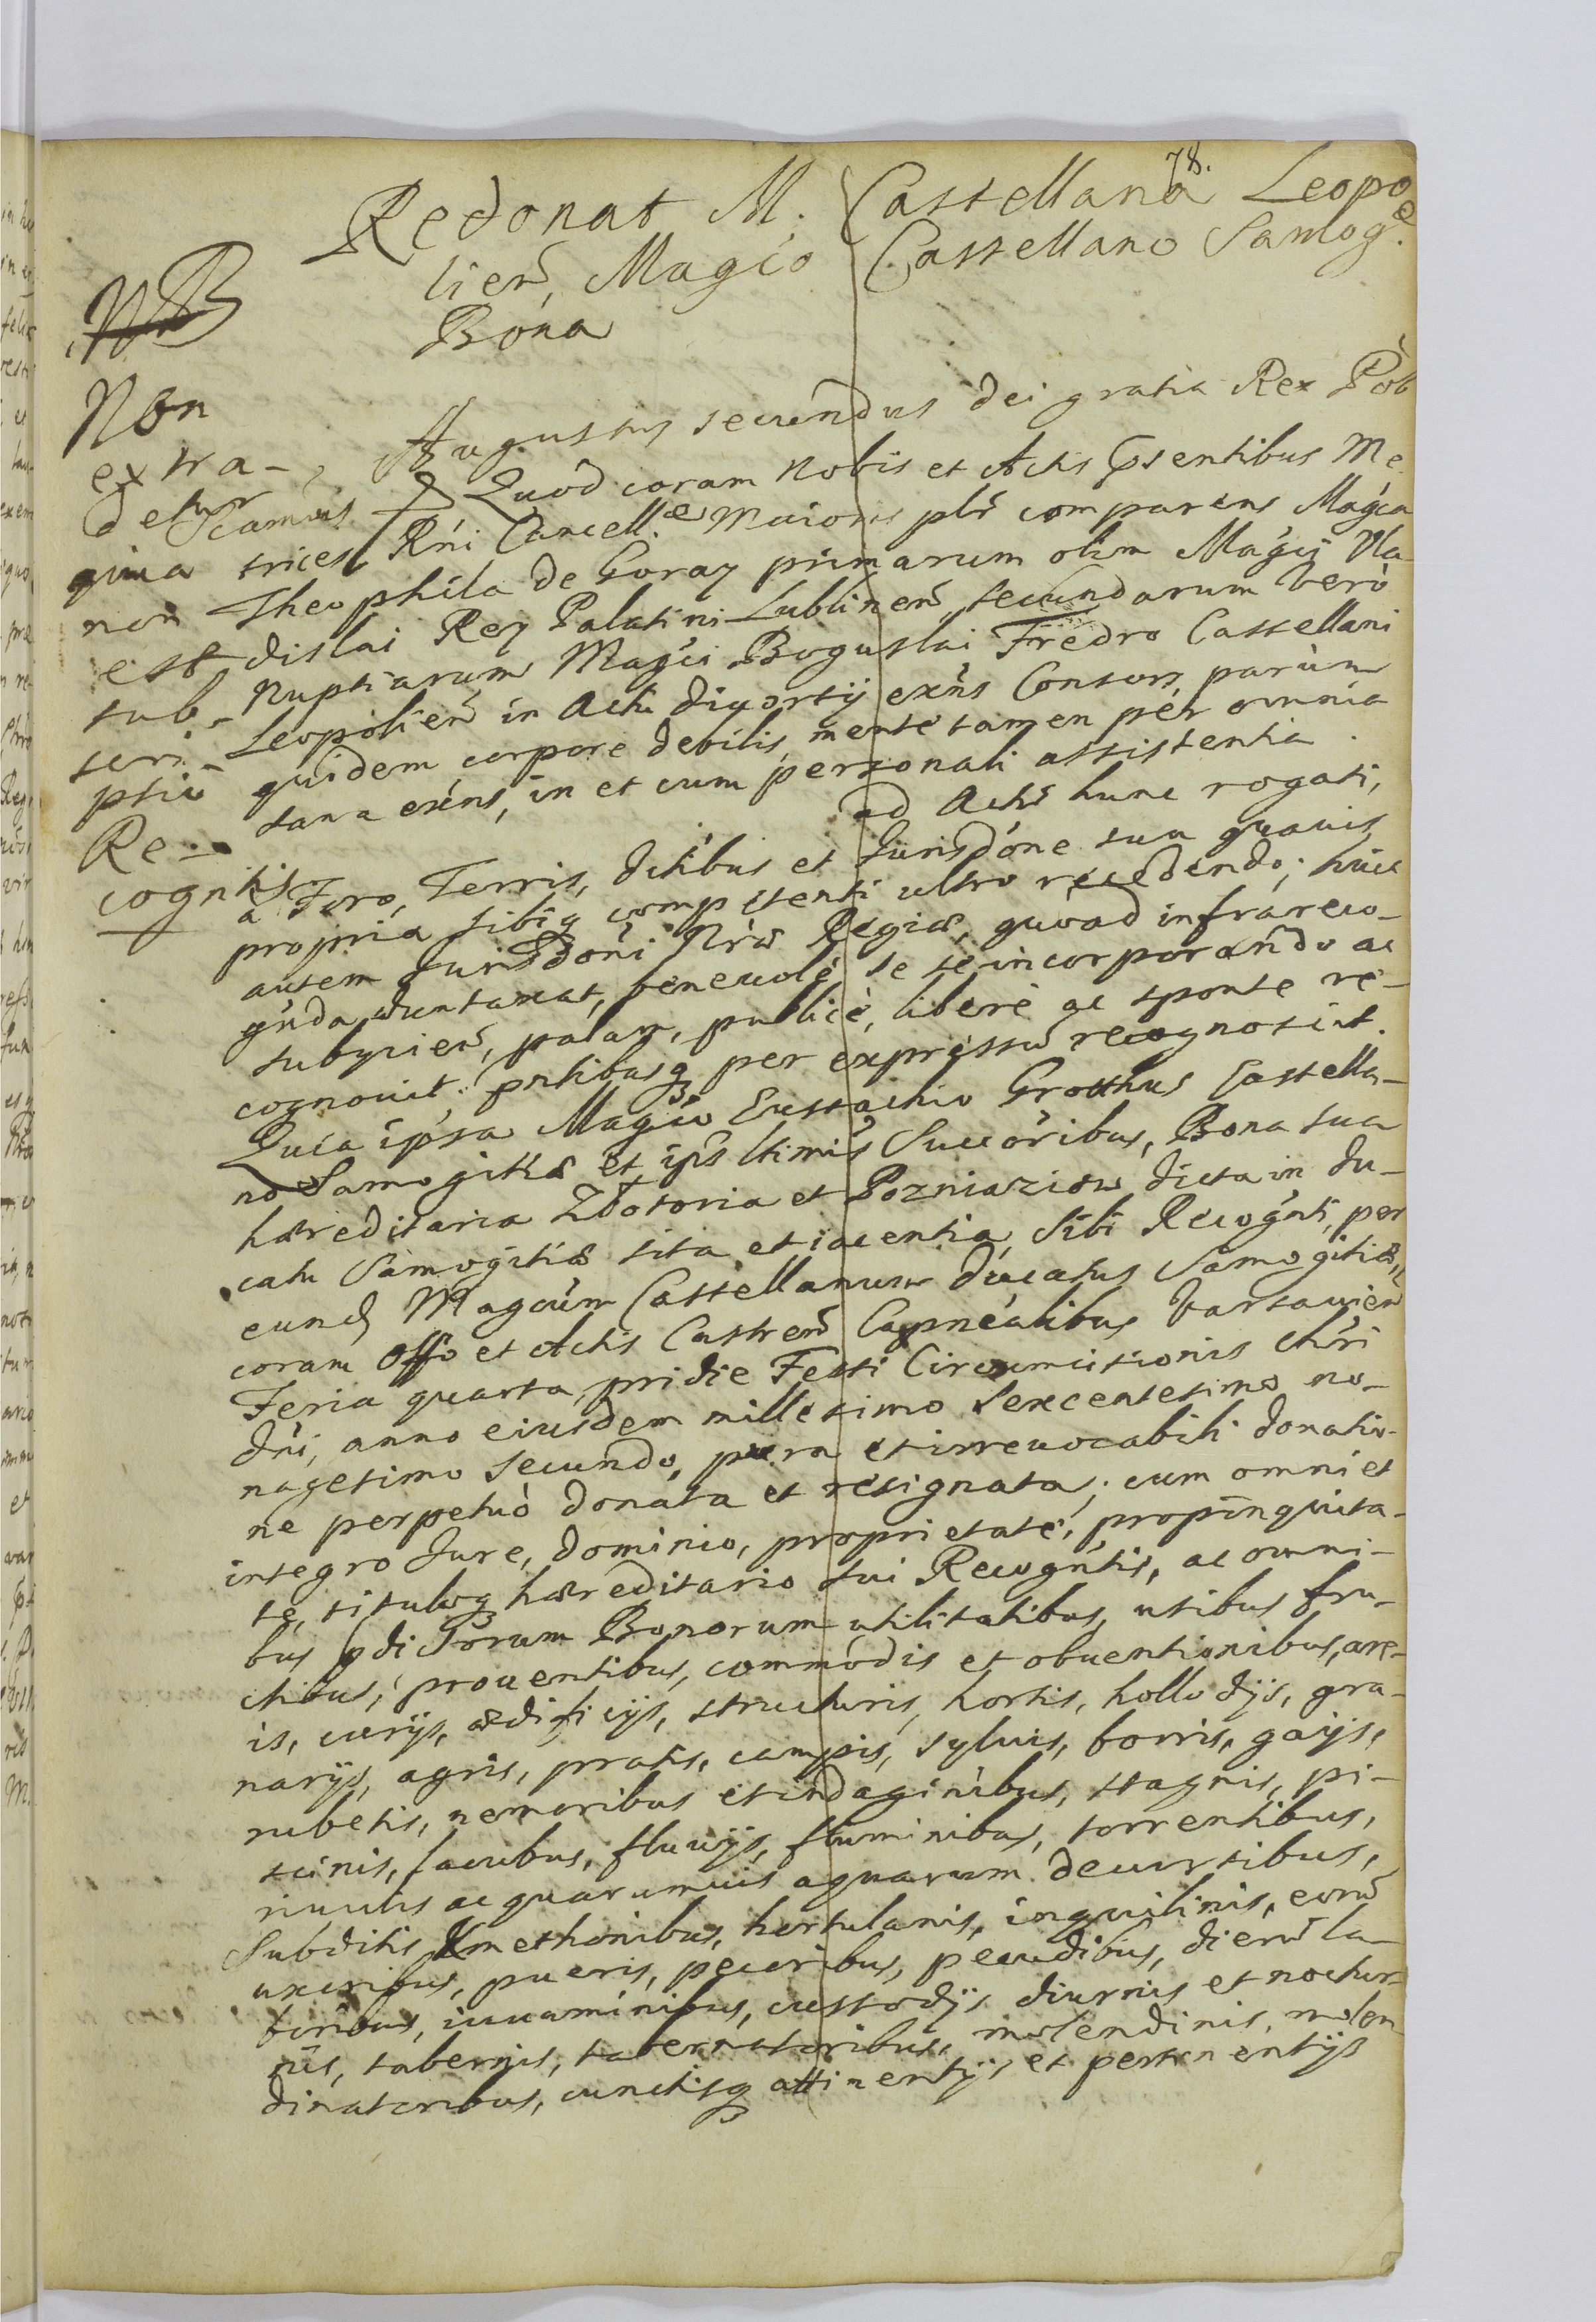 78.
Redonat M. Castellana Leopo
lien̄, Magco Castellano Samog.
Bona
NB
Non
extra-
detur
quia
non
est
sub-
scri-
ptio
Re-
cogntis
Augustus secundus dei gratia Rex Pol
Quod coram Nobis et Actis p̄sentibus Me
trices Rni Cancell.æ Maioris plr̄ comparens Magca
Theophila de Goray primarum olim Magci Vla
dislai Rey Palatini Lublinen̄ secundarum vero
Nuptiarum Magci Boguslai Fredro Castellani
Leopolien̄ in Actu divortij exn̄s Consors, parùm
quidem corpore debilis, mente tamen per omnia
sana exn̄s, in et cum personali assistentia .
ad Actū hunc rogati,
à Foro, Terris, dictibus et Jurisdóne sua quavis
propria sibiq competenti ultro recedendo; huic
autem Jurisdōni Nr̄æ Regiæ, quoad infrareco-
gn̄da duntaxat, benevolè se se incorporando ac
subyicien̄, palam, publicè, liberè ac sponte re-
cognovit: pn̄tibusq per expressū recognoscit.
Quia ipsa Magco Eustachio Grotthus Castella-
no Samogitiæ et ipsī ltimis Succōribus, Bona sua
hæreditaria Złotoria et Pozniazion dicta in Du-
catu Samogitiæ sita et iacentia, sibi Recognti, per
eund Magcum Castellanum Ducatus Samogitiæ,
coram Offo et Actis Castren̄ Capnealibus Varsavien̄
Feria quarta pridie Festi Circumcisionis Chr̄i
Dni, anno eiusdem millesimo sexcentesimo no-
nagesimo secundo, pura et irrevocabili donatio-
ne perpetuò donata et resignata; cum omni et
integro Jure, dominio, proprietate, propinquita-
te, tituloq hæreditario sui Recogntis, ac omni-
bus p̄dictorum Bonorum utilitatibus, usibus fru-
ctibus, proventibus, commodis et obventionibus, are-
is, curijs, ædificijs, structuris, hortis, hollodijs, gra-
narijs, agris, pratis, campis, sylvis, borris, gaijs,
rubetis, nemoribus et indaginibus, stagnis, pi-
scinis, lacubus, fluvijs, fluminibus, torrentibus,
rivulis ac quarumvis aquarum decursibus,
Subditis Kmethonibus, hortulanis, inquilinis, eorū
uxoribus, pueris, pecoribus, pecudibus, dierū la-
boribus, iuvaminibus, custodijs diurnis et noctur-
nis, tabernis, tabernatoribus, molendinis, molen-
dinatoribus, cunctisq attinentijs et pertinentijs